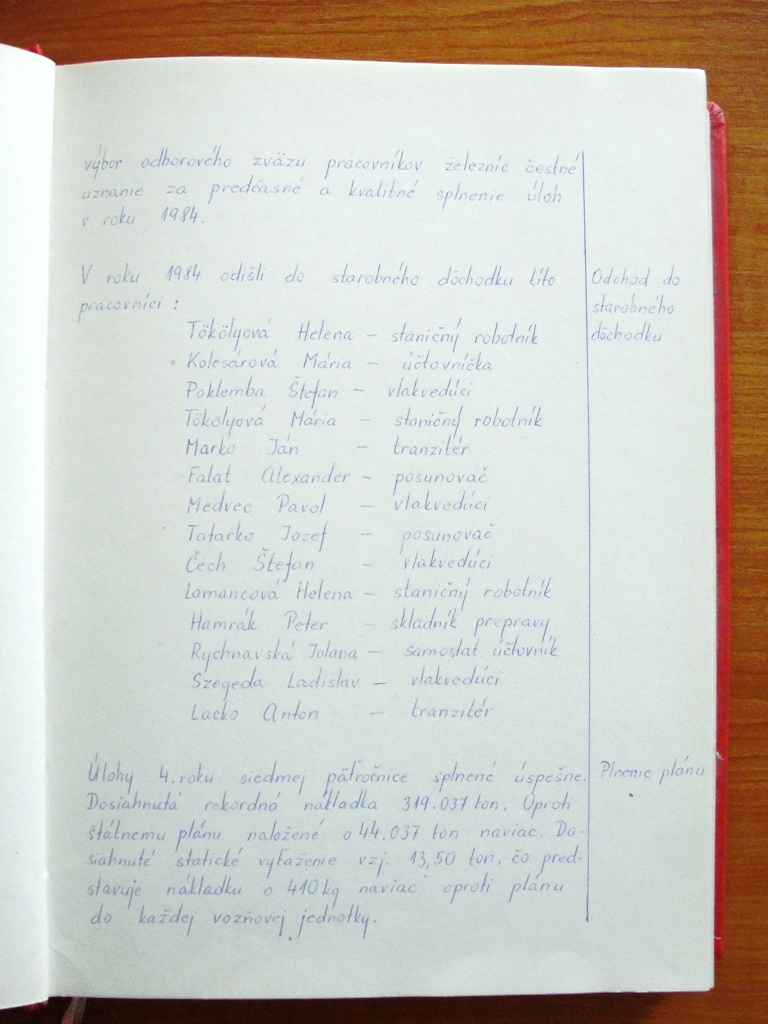 výbor odborového zväzu pracovníkov železníc čestné
uznanie za predčasné a kvalitné splnenie úloh
v roku 1984.
V roku 1984 odišli do starobného dôchodku títo
pracovníci :
Odchod do
starobného
dôchodku
Tökölyová Helena – staničný robotník
Kolesárová Mária – účtovníčka
Poklemba Štefan – vlakvedúci
Tökölyová Mária – staničný robotník
Marko Ján – tranzitér
Falat Alexander – posunovač
Medvec Pavol – vlakvedúci
Tatarko Jozef – posunovač
Čech Štefan – vlakvedúci
Lamancová Helena – staničný robotník
Hamrák Peter – skladník prepravy
Rychnavská Jolana – samostat. účtovník
Szegeda Ladislav – vlakvedúci
Lacko Anton – tranzitér
Úlohy 4. roku siedmej päťročnice splnené úspešne.
Plnenie plánu
Dosiahnutá rekordná nákladka 319.037 ton. Oproti
štátnemu plánu naložené o 44.037 ton naviac. Do-
siahnuté statické vyťaženie vzj. 13,50 ton, čo pred-
stavuje nákladku o 410 kg naviac oproti plánu
do každej vozňovej jednotky.